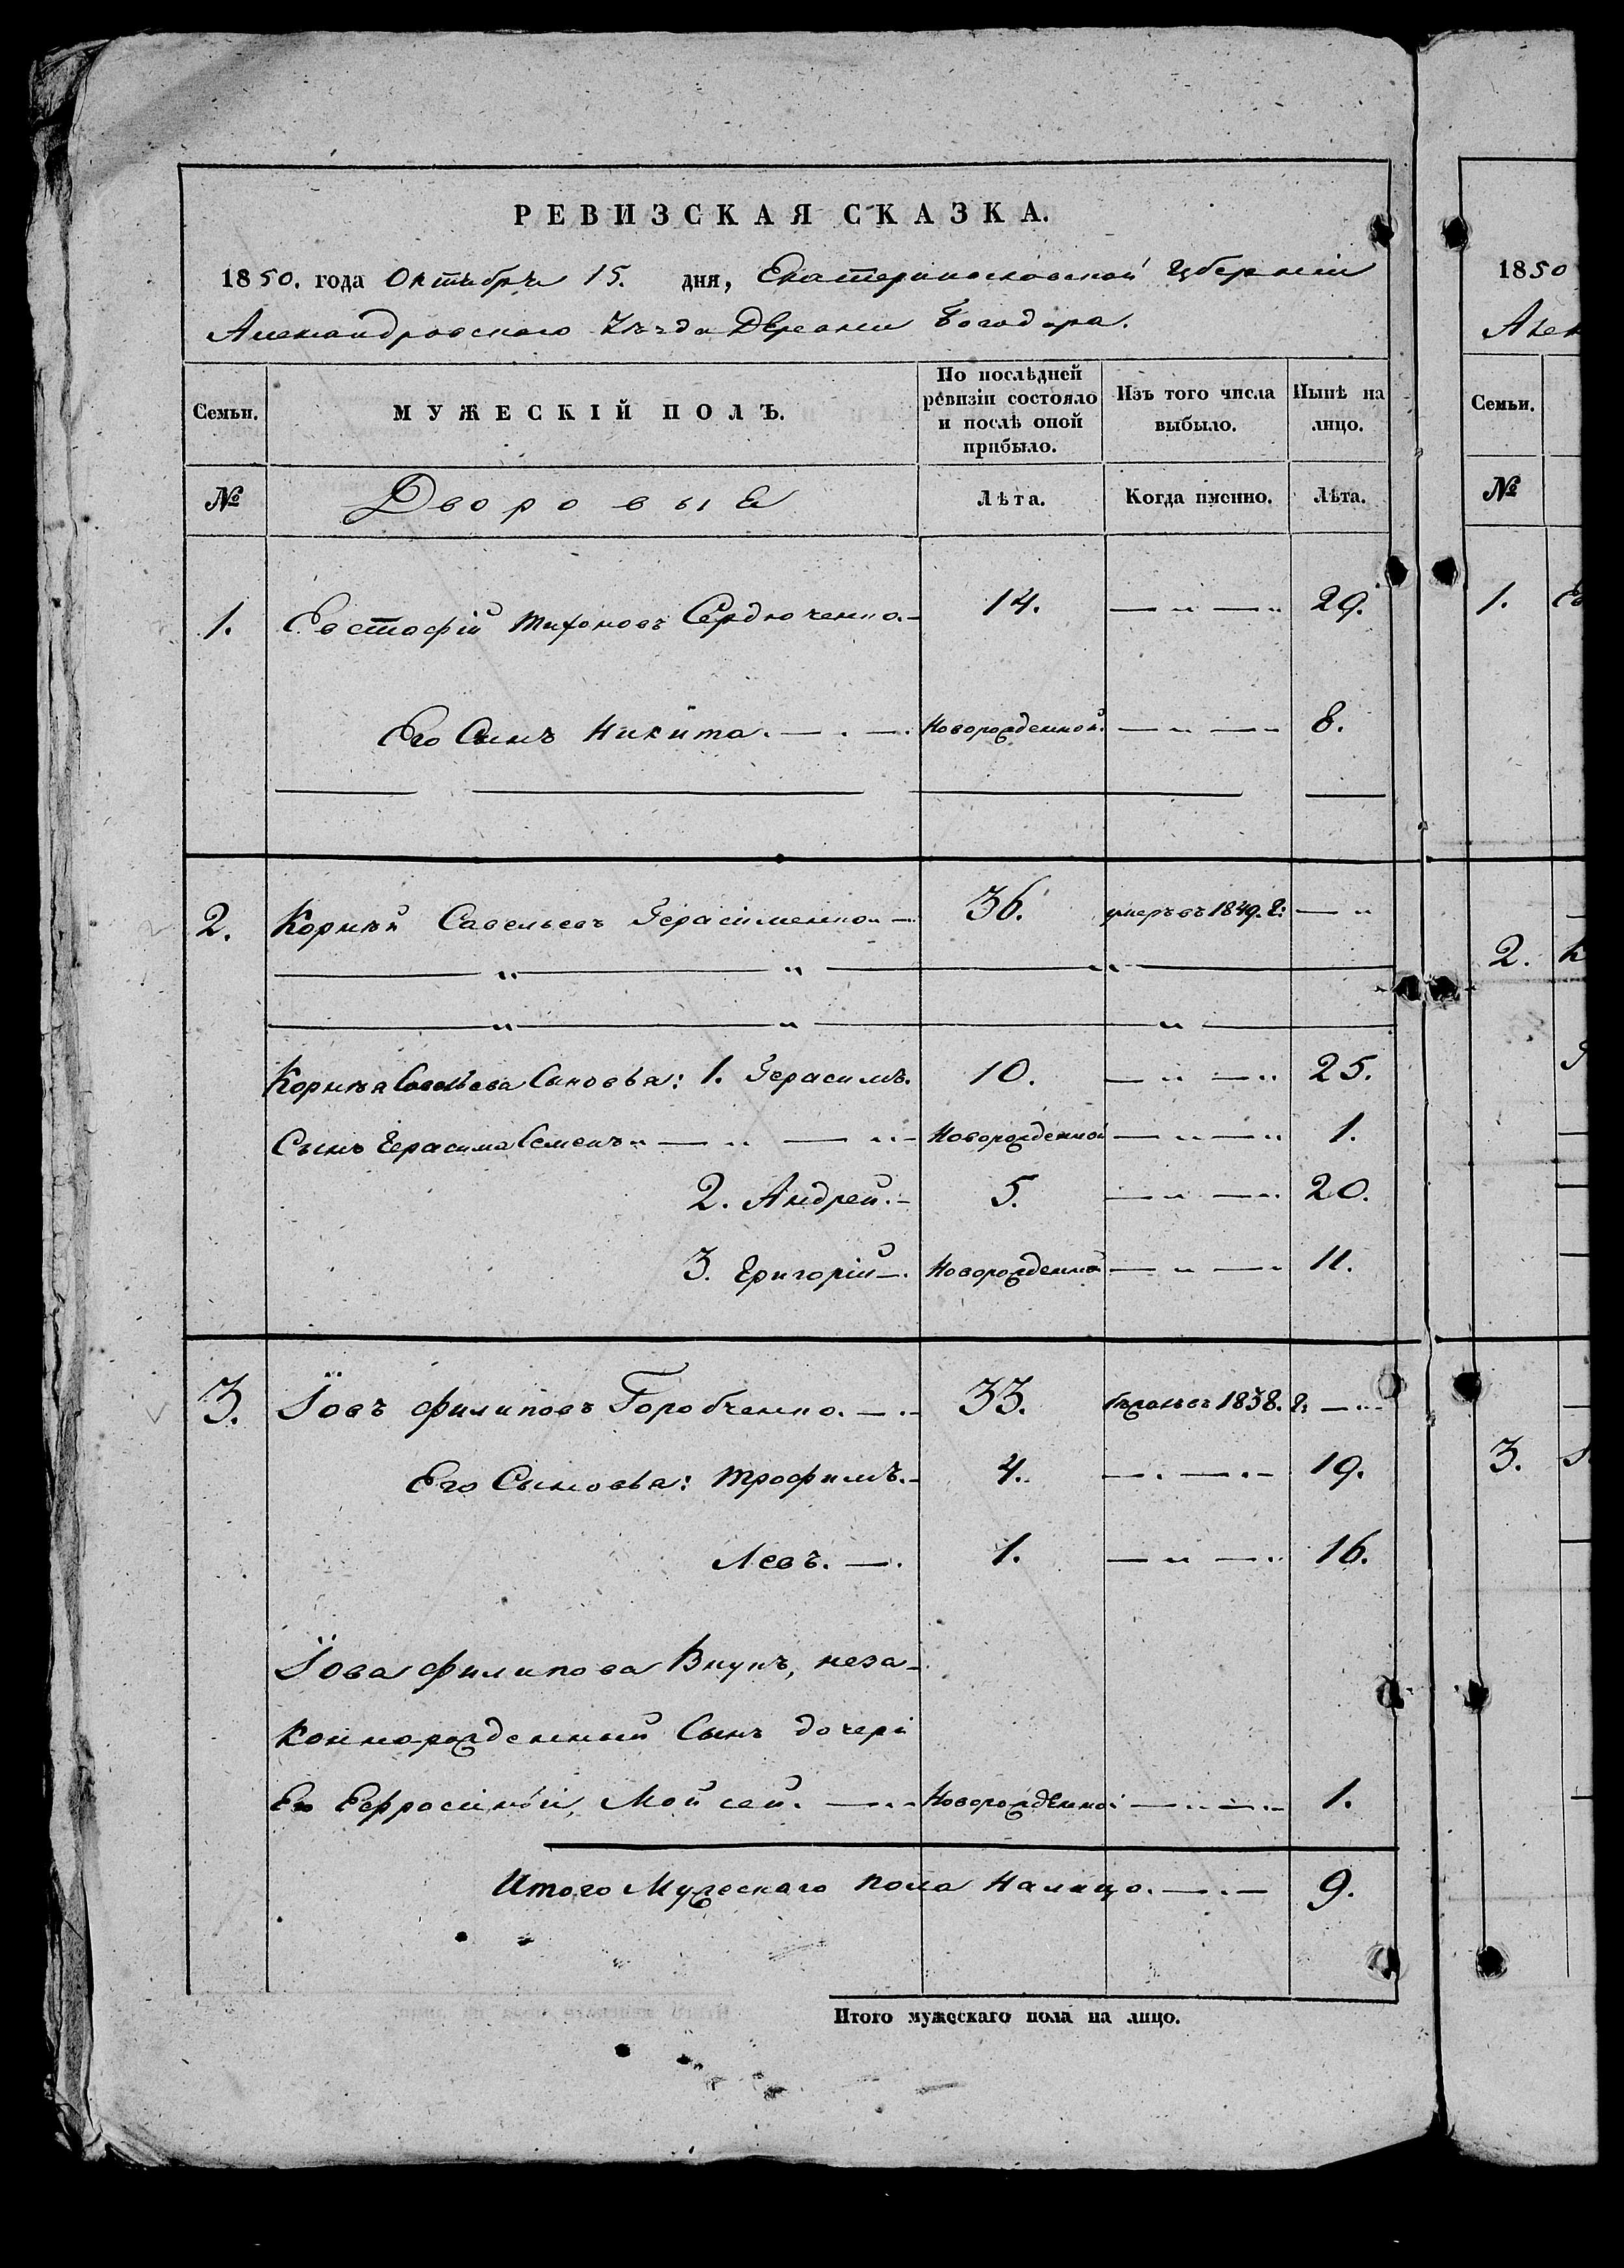 РЕВИЗСКАЯ СКАЗКА.
1850. года Октября 15. дня, Екатеринославской Губерніи
Александровскаго Уѣзда Деревни Богодара.
Семьи.
МУЖЕСКІЙ ПОЛЪ.
По послѣдней ревизіи состояло и послѣ оной прибыло.
Изъ того числа выбыло.
Нынѣ на лицо.
№
Дворовые
Лѣта.
Когда именно.
Лѣта.
1. Евстафій Тихоновъ Сердюченко. 14. 29.
Его Сынъ Никита. Новорожденной. 8.
2. Корнѣй Савельевъ Герасименко 36. умеръ въ 1849. г:
Корнѣя Савельева Сыновья: 1. Герасимъ. 10. 25.
Сынъ Герасима Семенъ Новорожденной 1.
2. Андрей. 5. 20.
3. Григорій. Новорожденной 11.
3. Іовъ Филиповъ Горобченко. 33. 1838. г:
Его Сыновья: Трофимъ. 4. 19.
Левъ. 1. 16.
Іова Филипова Внукъ, неза-
коннорожденный Сынъ дочери
Его Ефросиніи, Мойсей. Новорожденной 1.
Итого Мужескаго пола На лицо. 9.
Итого мужескаго пола на лицо.
1850
Алек
Семьи.
№
1. Ев
2. К
Г
3.